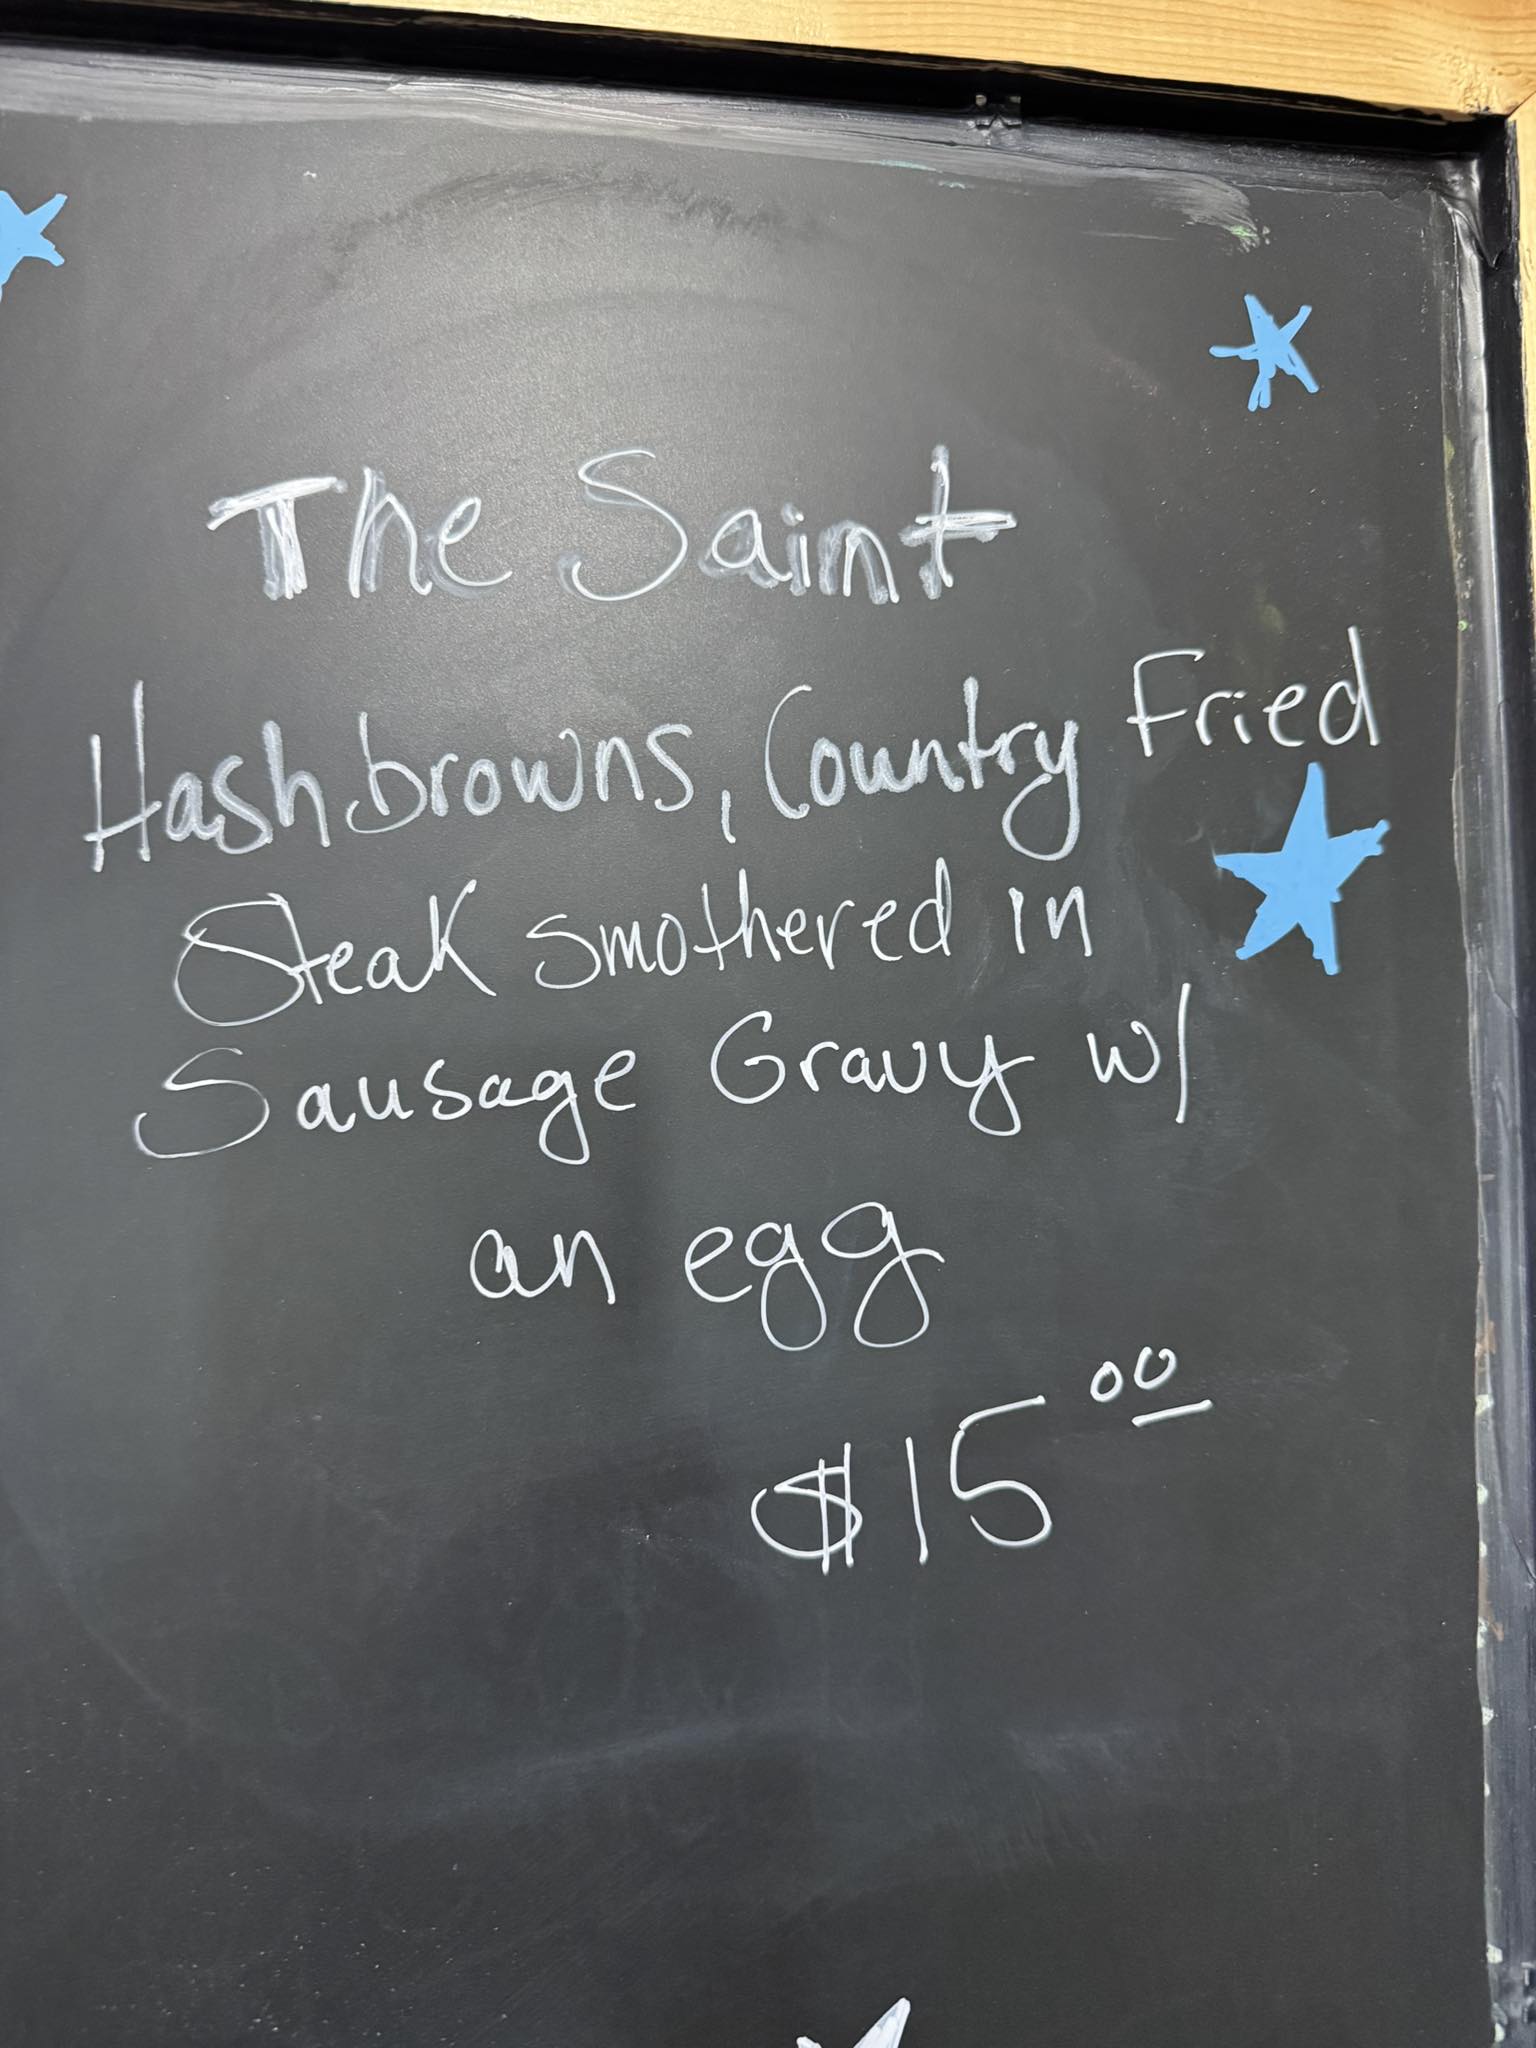 The Saint
Hashbrowns, Country Fried
Steak smothered in
Sausage Gravy w/
an egg
$15.00